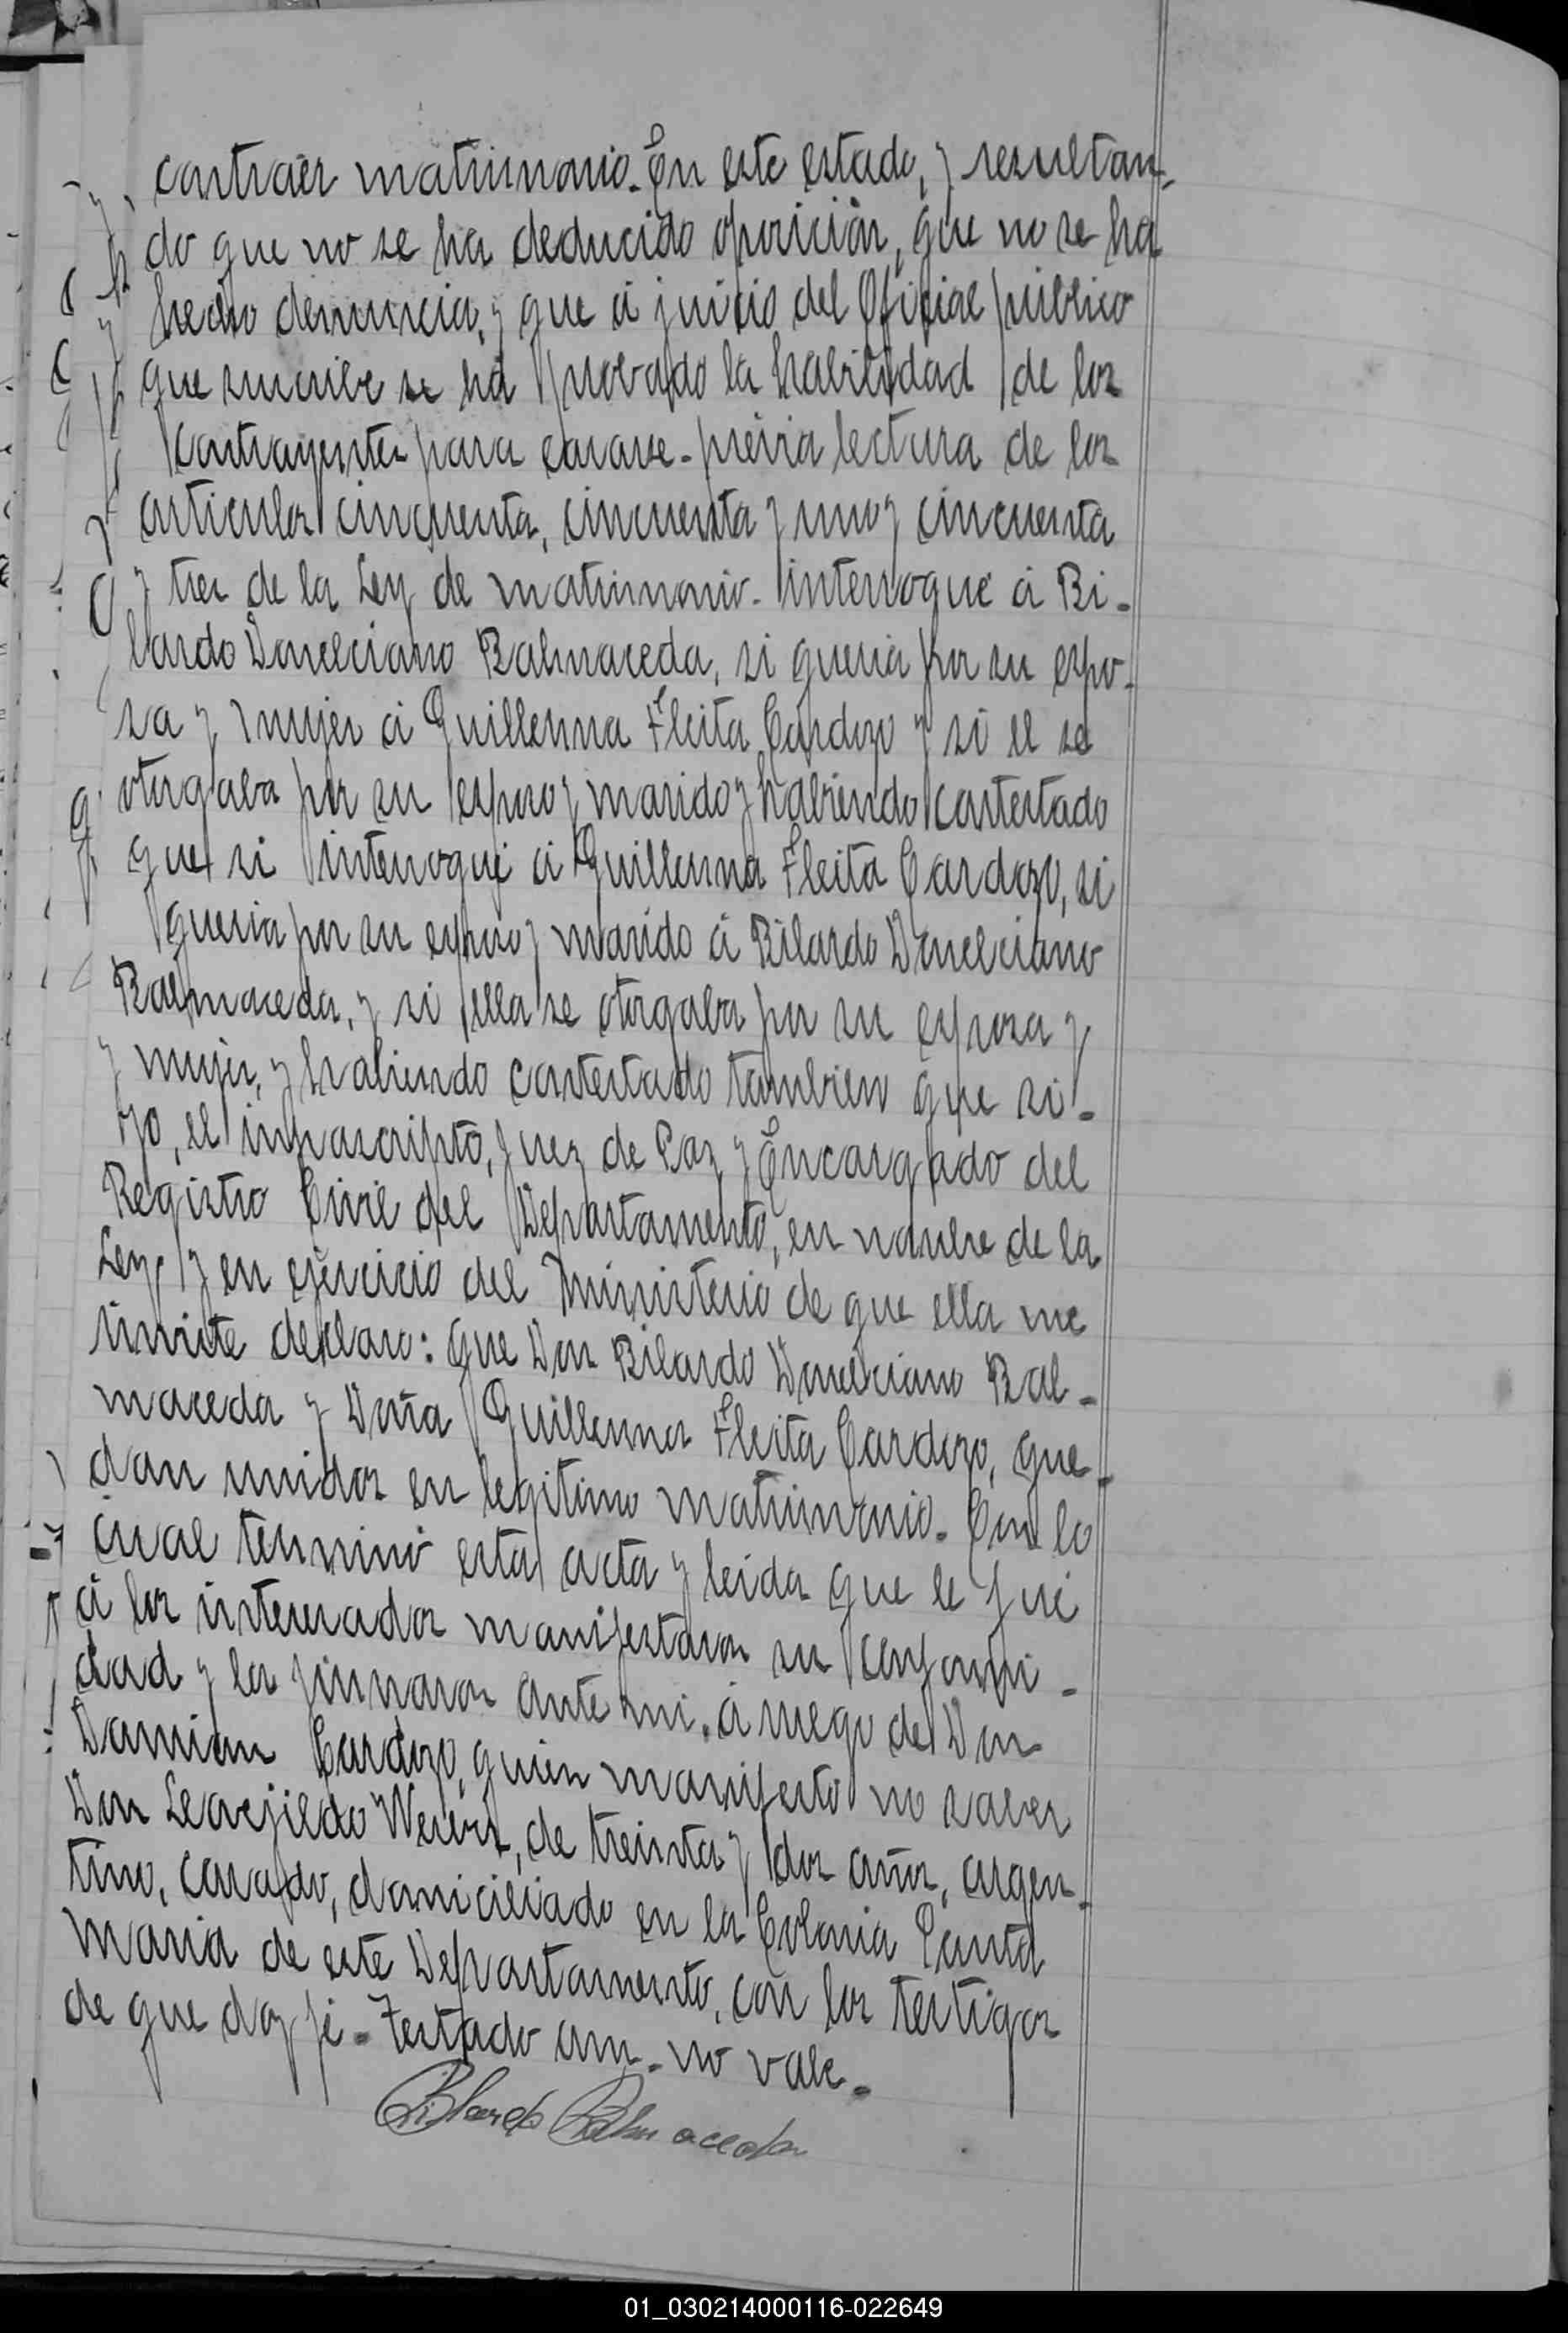 contraér matrimonio. En este estado, y resultan-
do que no se ha deducido oposición, que no se ha
hecho denuncia, y que á juicio del Oficial público
que suscribe se há provado la habilidad de los
contrayentes para casarse. prévia lectura de los
articulos cincuenta, cincuenta y uno y cincuenta
y tres de la Ley de matrimonio. interrogué á Bi-
lardo Donelciano Balmaceda, si queria por su espo-
sa y mujer á Guillerma Fleita Cardozo y si él se
otorgaba por su esposo y marido y habiendo contestado
que si interrogué á Guillerma Fleita Cardozo, si
queria por su esposo y marido á Bilardo Donelciano
Balmaceda, y si ella se otorgaba por su esposa y
y mujer, y habiendo contestado tambien que si.
yo, el infrascripto, Juez de Paz y Encargado del
Registro Civil del Departamento, en nombre de la
Ley, y en ejercicio del ministerio de que ella me
inviste declaro: que Don Bilardo Donelciano Bal-
maceda y Doña Guillerma Fleita Cardozo, que-
dan unidos en legitimo matrimonio. Con lo
cual terminó esta acta y leida que le fué
á los interesados manifestaron su conformi-
dad y la firmaron ante mi. á ruego de Don
Damian Cardozo, quien manifestó no saber
Don de treinta y dos años, argen-
tino, casado, domiciliado en la Colonia Santa
Maria de este Departamento, con los testigos
de que doy fé. Testado am. no vale.
Bilardo Balmaceda
01_030214000116-022649